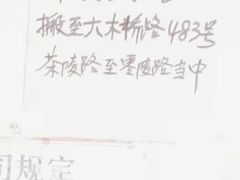 搬至大木桥路483号
茶陵路至零陵路当中
司规定